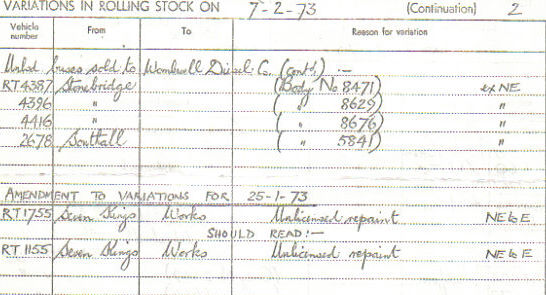 VARIATIONS IN ROLLING STOCK ON 7-2-73 (Continuation) 2
Vehicle number From To Reason for variation
Unlsd buses sold to Wombwell Diesel Co. (contd) :-
RT4387 Stonebridge (Body No 8471) ex NE
4396 " ( " 8629) "
4416 " ( " 8676) "
2678 Southall ( " 5841) "
AMENDMENT TO VARIATIONS FOR 25-1-73
RT1755 Seven Kings Works Unlicensed repaint NE to E
SHOULD READ:-
RT 1155 Seven Kings Works Unlicensed repaint NE to E